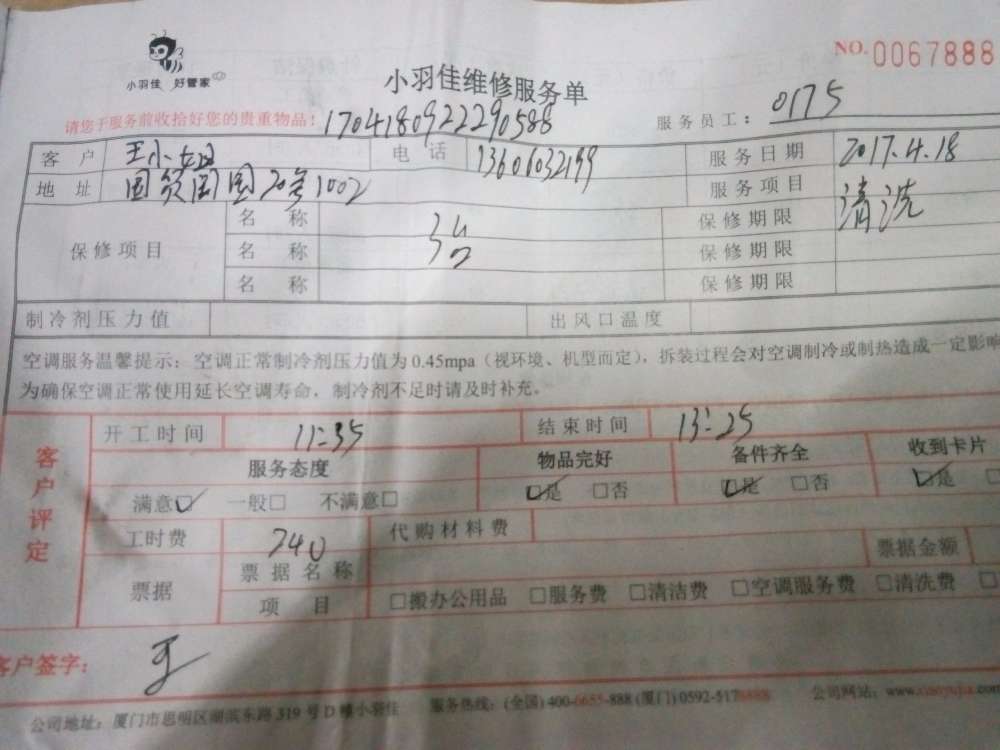 小羽佳 好管家
NO.0067888
小羽佳维修服务单
请您于服务前收拾好您的贵重物品: 17041809222290588 服务员工: 0175
客 户 王小姐 电 话 13606032199 服务日期 2017.4.18
地 址 国贸阳国20号1002 服务项目 清洗
保修项目 名 称 保修期限
名 称 保修期限
名 称 保修期限
制冷剂压力值 出风口温度
空调服务温馨提示: 空调正常制冷剂压力值为 0.45mpa (视环境、机型而定), 拆装过程会对空调制冷或制热造成一定影响
为确保空调正常使用延长空调寿命, 制冷剂不足时请及时补充。
客户评定
开工时间 11:35 结束时间 13:25
服务态度 物品完好 备件齐全 收到卡片
满意☑ 一般□ 不满意□ ☑是 □否 ☑是 □否 ☑是
工时费 240 代购材料费
票据 票据名称 票据金额
项 目 □搬办公用品 □服务费 □清洁费 □空调服务费 □清洗费
客户签字: 王
公司地址: 厦门市思明区湖滨东路 319 号 D 幢小羽佳 服务热线: (全国) 400-6655-888 (厦门) 0592-5178888 公司网站: www.xiaoyujia.com